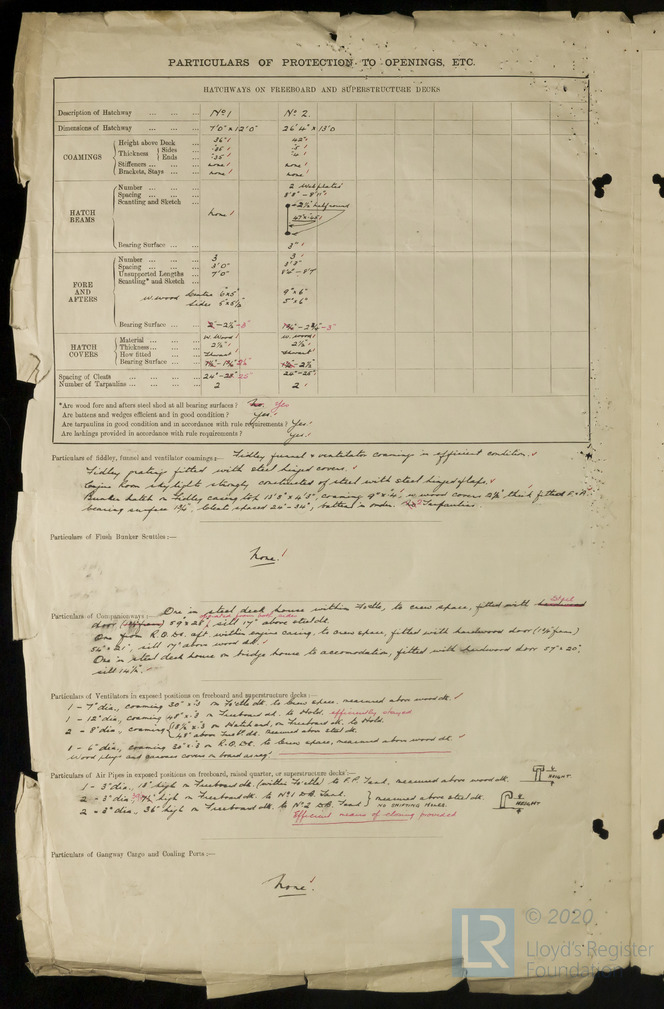 PARTICULARS OF PROTECTION TO OPENINGS, ETC.
HATCHWAYS ON FREEBOARD AND SUPERSTRUCTURE DECKS
Description of Hatchway ... ... ... No 1 No 2.
Dimensions of Hatchway ... ... ... 7'0" x 12'0" 26'4" x 13'0
COAMINGS
Height above Deck ... 36" 42"
Thickness { Sides ... .35 .5
Ends ... .35 .4
Stiffeners ... ... ... none none
Brackets, Stays ... ... none none
HATCH BEAMS
Number ... ... ... 2 Web plates
Spacing ... ... ... 8'8" - 8'11"
Scantling and Sketch ... none 2½ half round
Bearing Surface ... ... 3"
FORE AND AFTERS
Number ... ... ... 3 3
Spacing ... ... ... 3'0" 3'3"
Unsupported Lengths ... 7'0"
Scantling* and Sketch ...
W. wood Centre 6" x 5" 9" x 6"
Sides 5" x 6"
Bearing Surface ... ... 2" - 2½ - 3" 1¾" - 2¾ - 3"
HATCH COVERS
Material ... ... ... W. Wood W. wood
Thickness ... ... ... 2½" 2½"
How fitted ... ... thwart thwart
Bearing Surface ...
Spacing of Cleats ... ... ... ... 24" - 25"
Number of Tarpaulins ... ... ... ... 2 2
*Are wood fore and afters steel shod at all bearing surfaces ? No. Yes
Are battens and wedges efficient and in good condition ? Yes.
Are tarpaulins in good condition and in accordance with rule requirements ? Yes
Are lashings provided in accordance with rule requirements ? Yes
Particulars of fiddley, funnel and ventilator coamings :— Fidley funnel & ventilator coamings in efficient condition.
Fidley grating fitted with steel hinged covers.
Engine Room skylights strongly constructed of steel with steel hinged flaps.
Bunker hatch on Fidley casing top 13'3" x 4'3", coaming 9" x .4, w. wood covers 2½ thick fitted F. & A.
bearing surface 1¾", Cleats spaced 24" - 34", battens in order. Tarpaulins.
Particulars of Flush Bunker Scuttles :—
None.
Particulars of Companionways :— One in steel deck house within Fo'cle, to crew space, fitted with hardwood Steel
door operated from both sides 59" x 28", sill 17" above steel dk.
One from R.Q.Dk. aft within engine casing, to crew space, fitted with hardwood door
54" x 21", sill 17" above wood dk.
One in steel deck house on bridge house to accomodation, fitted with hardwood door 57" x 20",
sill 14½".
Particulars of Ventilators in exposed positions on freeboard and superstructure decks :—
1 - 7" dia., coaming 30" x .3 on Fo'cle dk to Crew space, measured above wood dk.
1 - 12" dia., coaming 48" x .3 on Freeboard dk. to Hold. efficiently stayed
2 - 8" dia., coamings { 18½" x .3 on Hatchend, on Freeboard dk. to Hold.
48" above Freeb'd dk. measured above steel dk.
1 - 6" dia., coaming 30" x .3 on R.Q.Dk. to Crew space, measured above wood dk.
Wood plugs and canvas covers on board nearly.
Particulars of Air Pipes in exposed positions on freeboard, raised quarter, or superstructure decks :—
1 - 3" dia., 18" high on Freeboard dk. (within Fo'cle) to F.P. Tank, measured above wood dk. HEIGHT
2 - 3" dia., high on Freeboard dk. to No 1 D.B. Tank. } measured above steel dk. HEIGHT
2 - 3" dia., 36" high on Freeboard dk. to No 2 D.B. Tank } NO SNIFTING HOLES.
Efficient means of closing provided
Particulars of Gangway Cargo and Coaling Ports :—
None.
LR © 2020
Lloyd's Register
Foundation